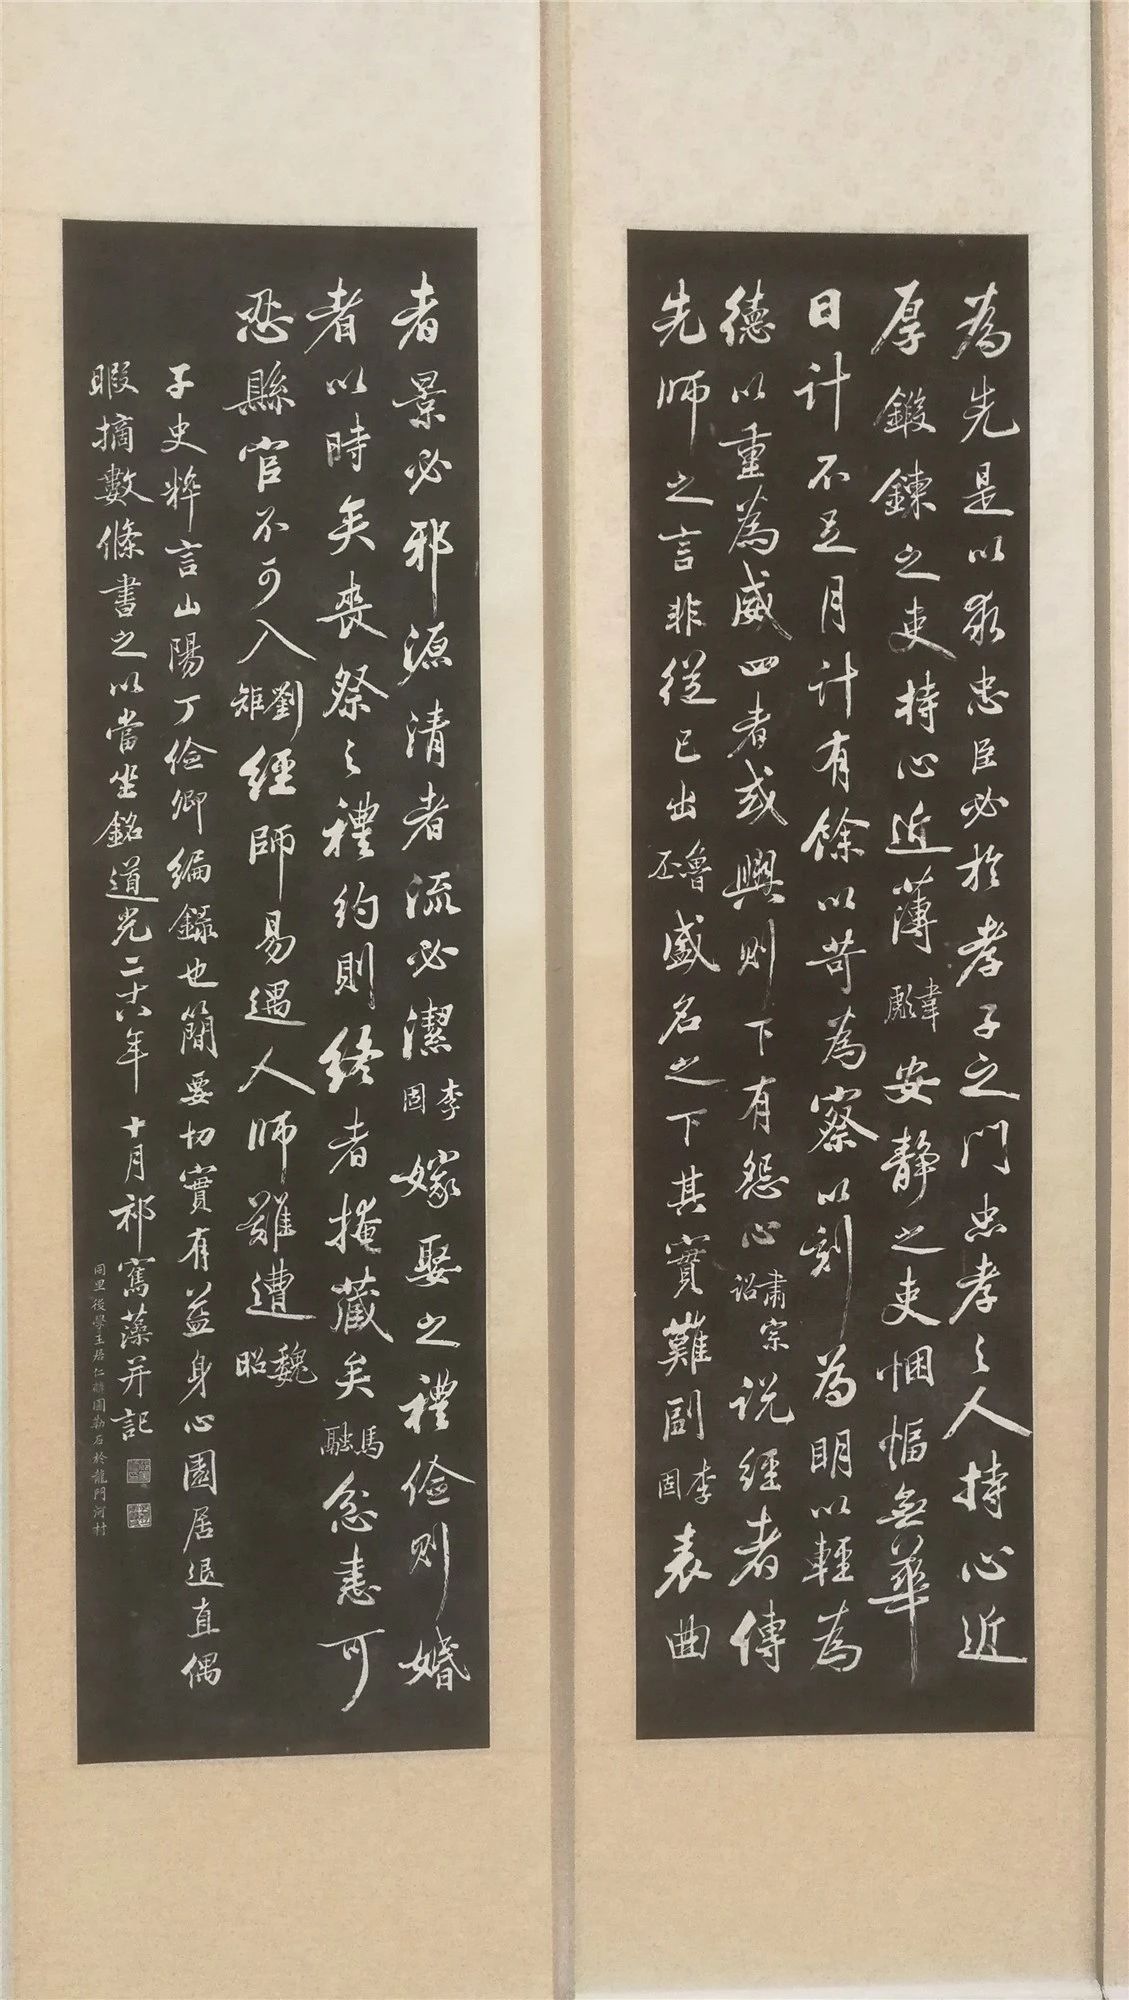 為先是以求忠臣必於孝子之門忠孝之人持心近
厚鍛鍊之吏持心近薄韋彪安靜之吏悃愊無華
日計不足月計有餘以苛為察以刻為明以輕為
德以重為威四者或興則下有怨心肅宗詔說經者傳
先師之言非從己出魯丕盛名之下其實難副李固表曲
者景必邪源清者流必潔李固嫁娶之禮儉則婚
者以時矣喪祭之禮約則終者掩藏矣馬融忿恚可
忍縣官不可入劉矩經師易遇人師難遭魏昭
子史粹言山陽丁儉卿編錄也簡要切實有益身心園居退直偶
暇摘數條書之以當坐銘道光二十八年十月祁寯藻并記
同里後學王居仁雙圖勒石於龍門河村